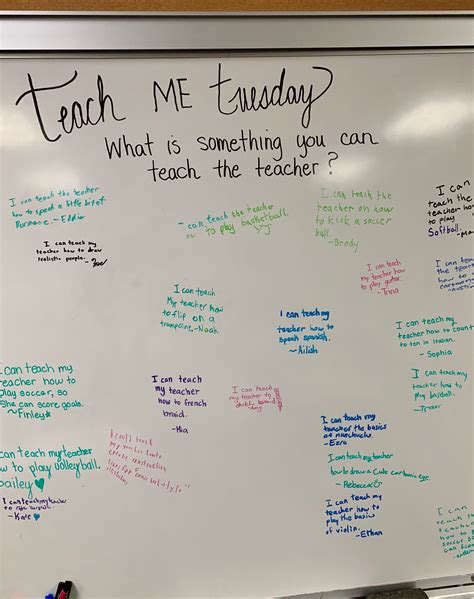 Teach ME Tuesday
What is something you can
teach the teacher?
I can teach the teacher
how to speak a little bit of
- Eddie
I can teach my
teacher how to draw
realistic people. - Zoe
I can teach the teacher
how to play basketball.
- J
I can teach the
teacher on how
to kick a soccer
ball.
- Brody
I can
teach the
teacher how
to play
Softball.
I can teach my
teacher how
to play guitar.
- Trina
I can teach
the teach
how to
cartoon
I can teach
My teacher how
to flip on a
trampoline. - Noah
I can teach my
teacher how to
speak spanish.
- Ailish
I can teach my
teacher how to count
to ten in Italian.
- Sophia
I can teach my
teacher how to
play soccer, so
she can score goals.
~ Finley★
I can teach
my teacher
how to french
braid.
- Mia
I can teach
my teacher to
braid.
I can teach my
teacher how to
play baseball.
I can teach
my teacher how to
create
I can teach my
teacher the basics
of
- Ezra
I can teach my teacher
how to play volleyball.
bailey♥
I can teach my teacher
how to draw a cute cartoon eye
Rebecca
I can teach my teacher
to
- Kate♥
I can teach my
teacher how to
play the basics
of violin. - Ethan
I can
teach the
teacher how
to
soccer so
can score